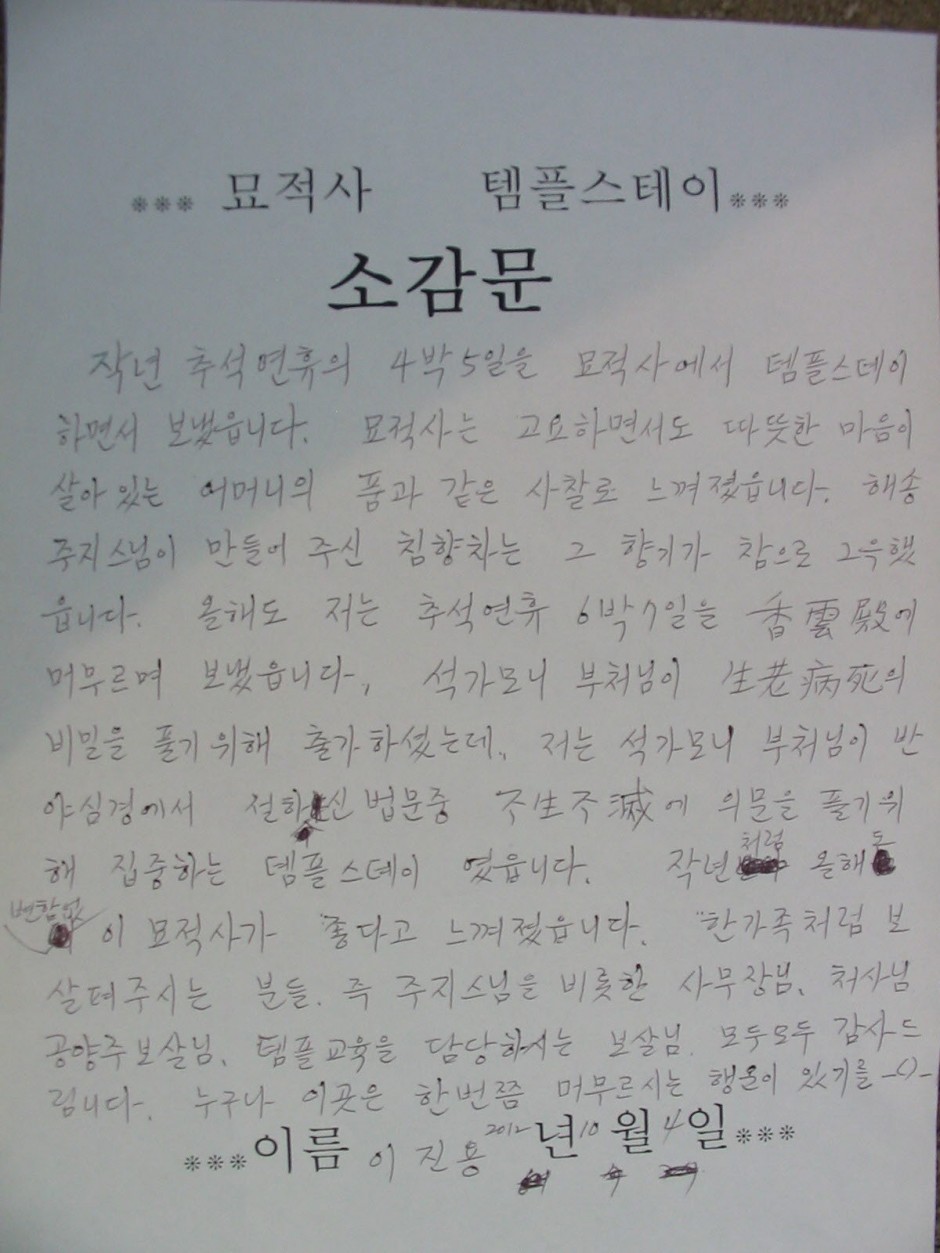 *** 묘적사 템플스테이 ***
소감문
작년 추석연휴의 4박5일을 묘적사에서 템플스데이
하면서 보냈읍니다. 묘적사는 고요하면서도 따뜻한 마음이
살아있는 어머니의 품과 같은 사찰로 느껴졌읍니다. 해송
주지스님이 만들어 주신 침향차는 그 향기가 참으로 그윽했
읍니다. 올해도 저는 추석연휴 6박7일을 香雲殿에
머무르며 보냈읍니다. 석가모니 부처님이 生老病死의
비밀을 풀기위해 출가하셨는데, 저는 석가모니 부처님이 반
야심경에서 절하신 법문중 不生不滅에 의문을 풀기위
해 집중하는 템플스데이 였읍니다. 작년처럼 올해도
변함없이 묘적사가 좋다고 느껴졌읍니다. "한가족처럼 보
살펴주시는 분들. 즉 주지스님을 비롯한 사무장님, 처사님
공양주보살님, 템플교육을 담당하시는 보살님. 모두모두 감사드
립니다. 누구나 이곳은 한번쯤 머무르시는 행운이 있기를
***이름 이진용 2012년 10월 4일***